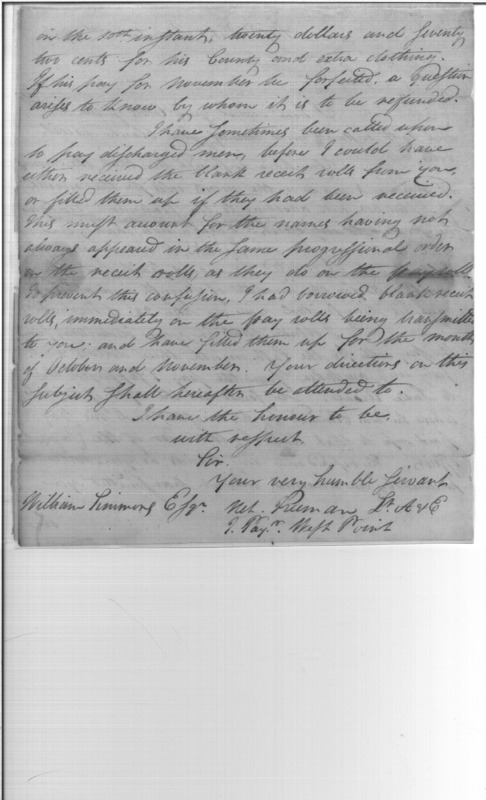 on the 10th instant, twenty dollars and seventy
two cents for his bounty and extra clothing.
If his pay for November be forfeited, a question
arises to know by whom it is to be refunded.
I have sometimes been called upon
to pay discharged men, before I could have
either received the blank receit rolls from you,
or filled them up if they had been received.
This must account for the names having not
always appeared in the same progressional order
on the receit rolls, as they do on the pay rolls.
To prevent this confusion, I had borrowed blank receit
rolls, immediately on the pay rolls being transmitted
to you; and I have filled them up for the months
of October and November. Your directions on this
subject shall hereafter be attended to.
I have the honour to be,
with respect,
Sir,
Your very humble Servant
William Simmons Esqr. Net. Freeman Lt. A&E
Paymr. West Point